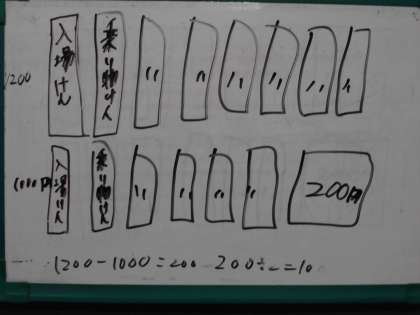 1200 入場けん 乗り物けん 〃 〃 〃 〃 〃 〃
1000円 入場けん 乗り物けん 〃 〃 〃 〃 200円
1200-1000=200 200÷2=10